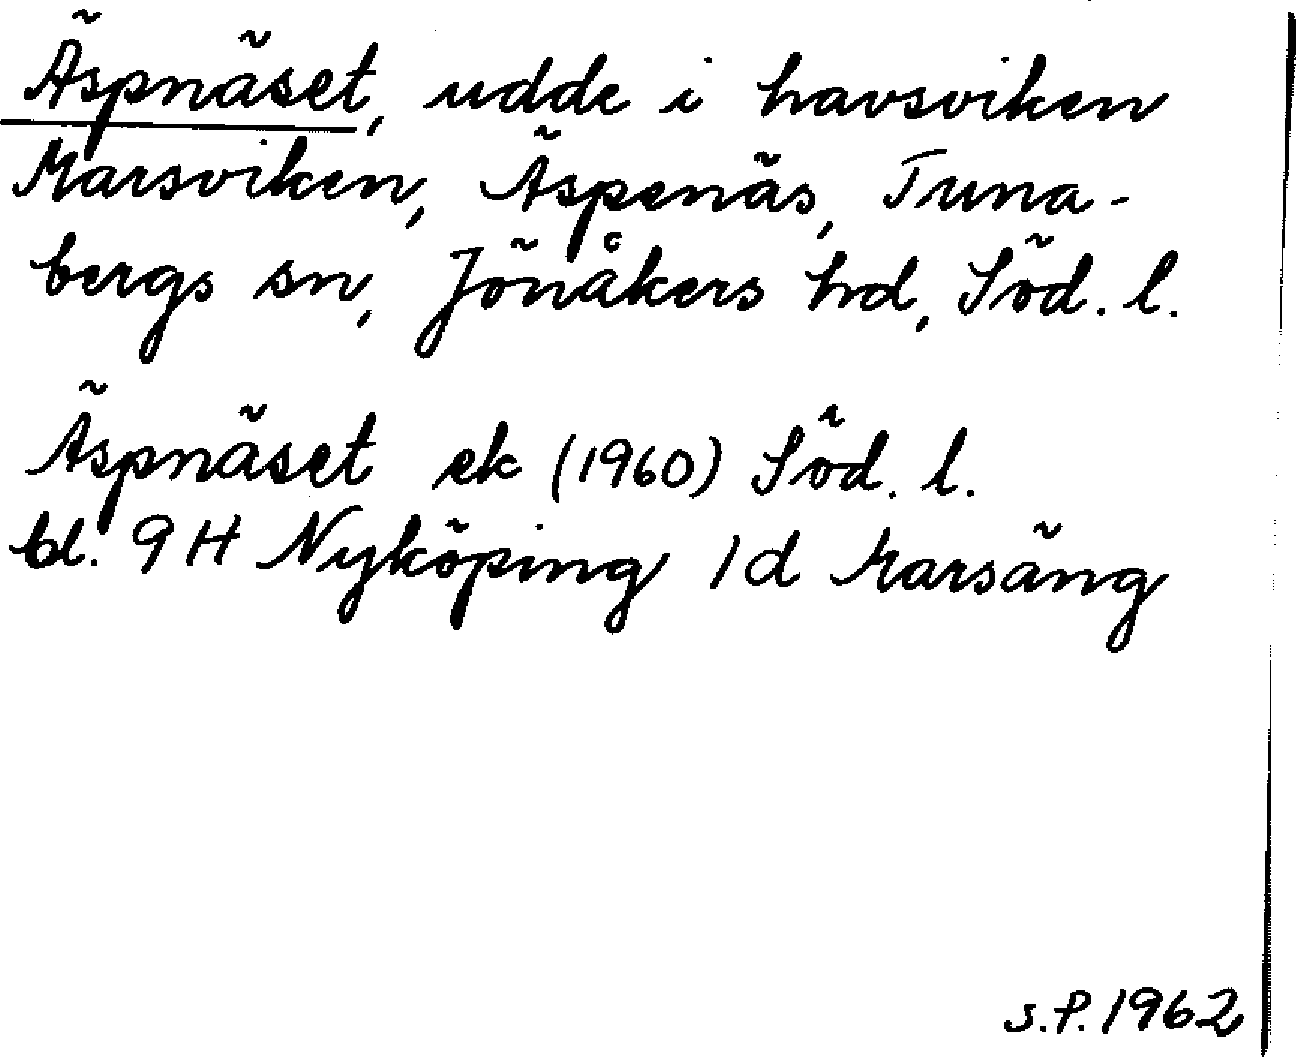 Äspnäset, udde i havsviken
Marsviken, Äspenäs, Tuna-
bergs sn, Jönåkers hd, Söd. l.
Äspnäset ek (1960) Söd. l.
bl. 9 H Nyköping 1 d Marsäng
S.P. 1962